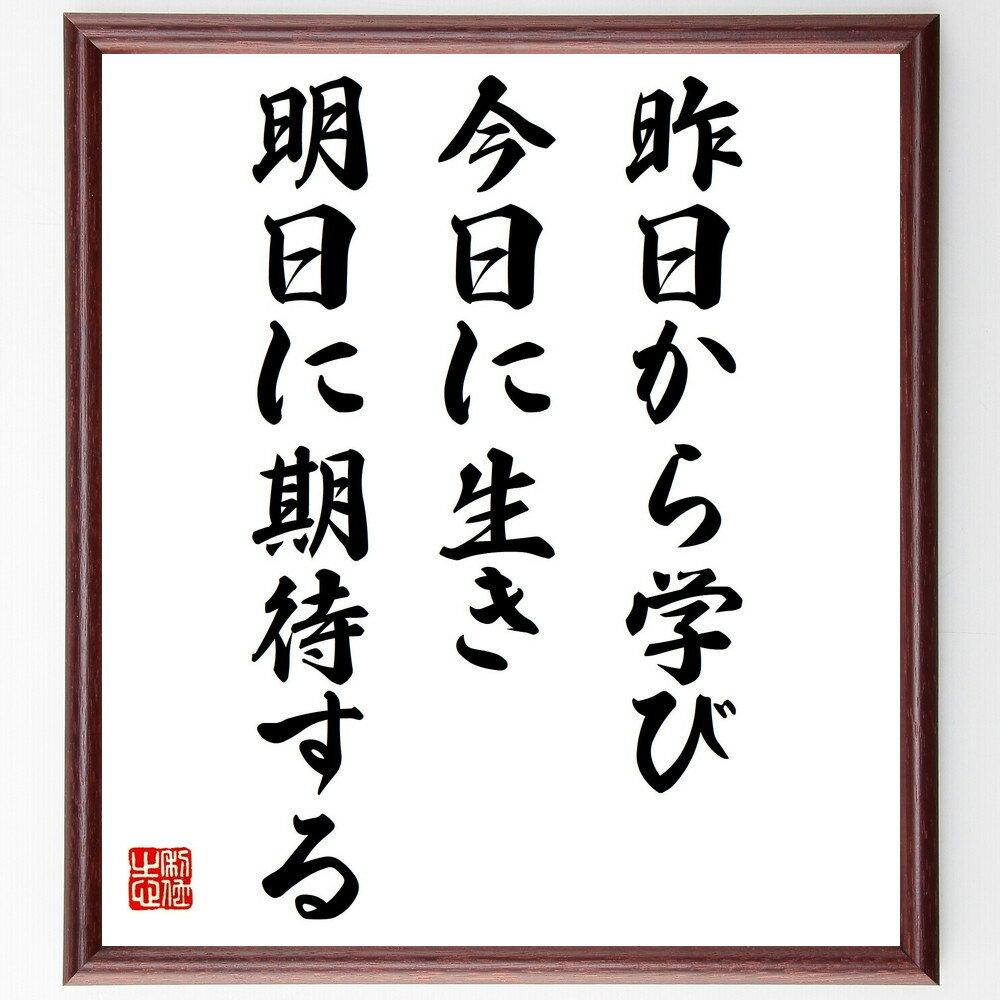 昨日から学び
今日に生き
明日に期待する